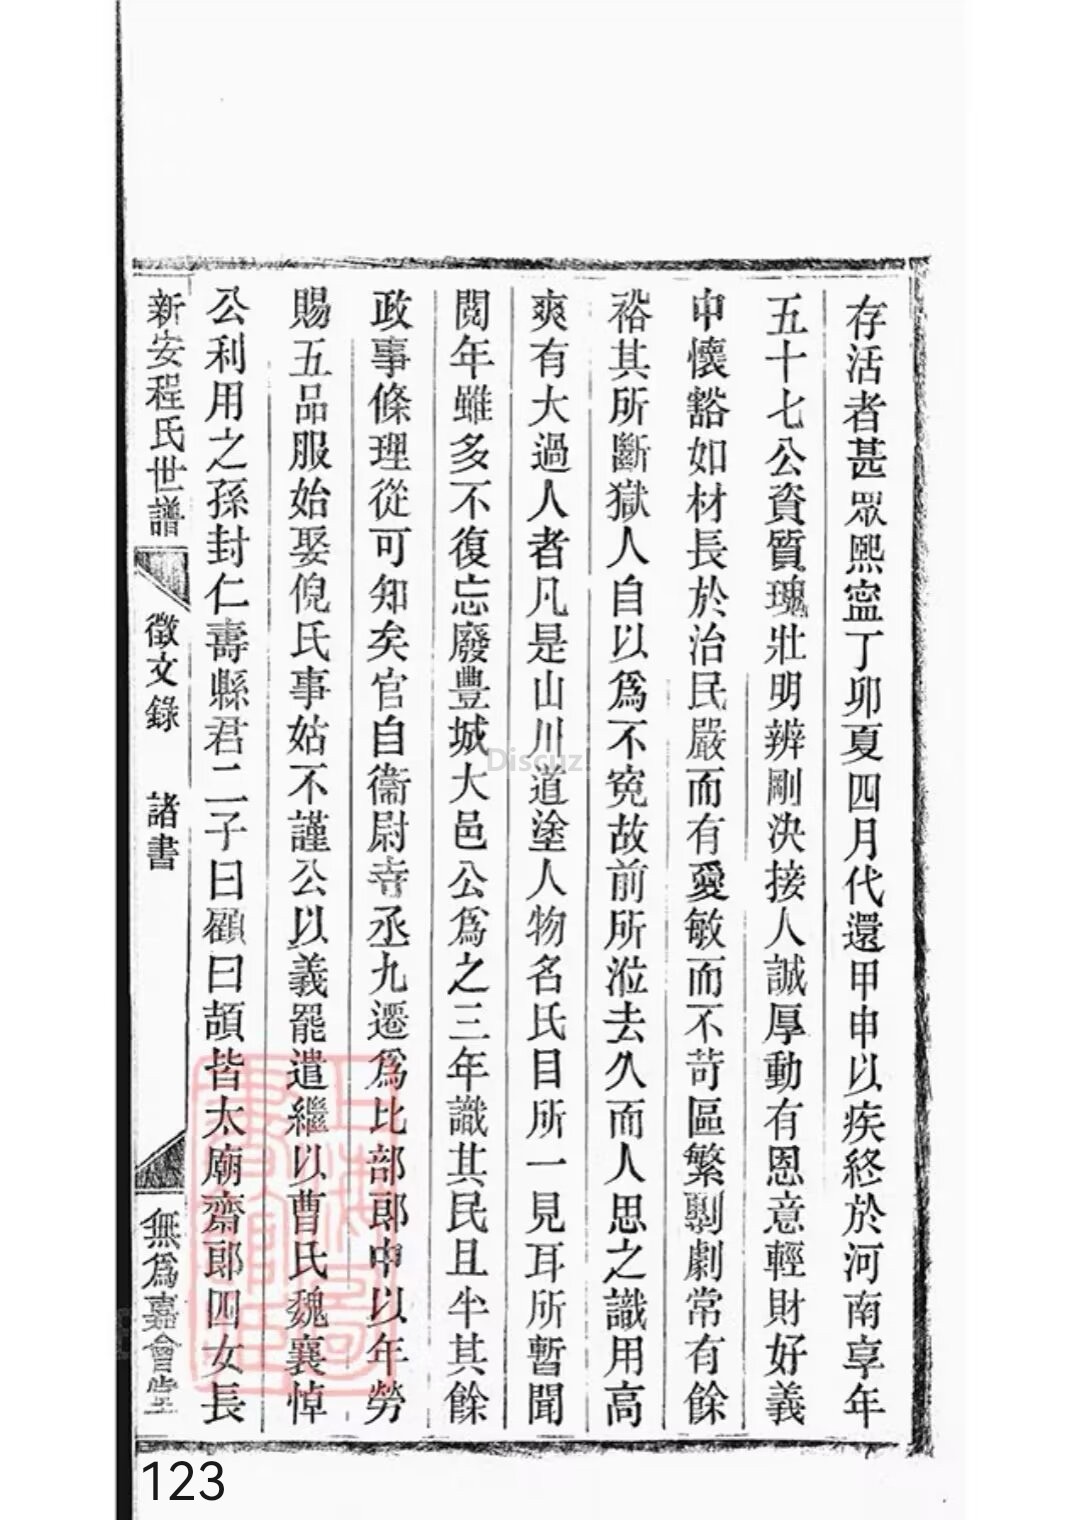 存活者甚眾熙寍丁卯夏四月代還甲申以疾終於河南享年
五十七公資質瑰壯明辨剛决接人誠厚動有恩意輕財好義
中懷豁如材長於治民嚴而有愛敏而不苛區繁剸劇常有餘
裕其所斷獄人自以爲不寃故前所涖去久而人思之識用高
爽有大過人者凡是山川道塗人物名氏目所一見耳所暫聞
閱年雖多不復忘廢豐城大邑公爲之三年識其民且半其餘
政事條理從可知矣官自衞尉寺丞九遷爲比部郎中以年勞
賜五品服始娶倪氏事姑不謹公以義罷遣繼以曹氏魏襄悼
公利用之孫封仁壽縣君二子曰顧曰頡皆太廟齋郎四女長
新安程氏世譜 徵文錄 諸書 無爲嘉會堂
Discuz
123